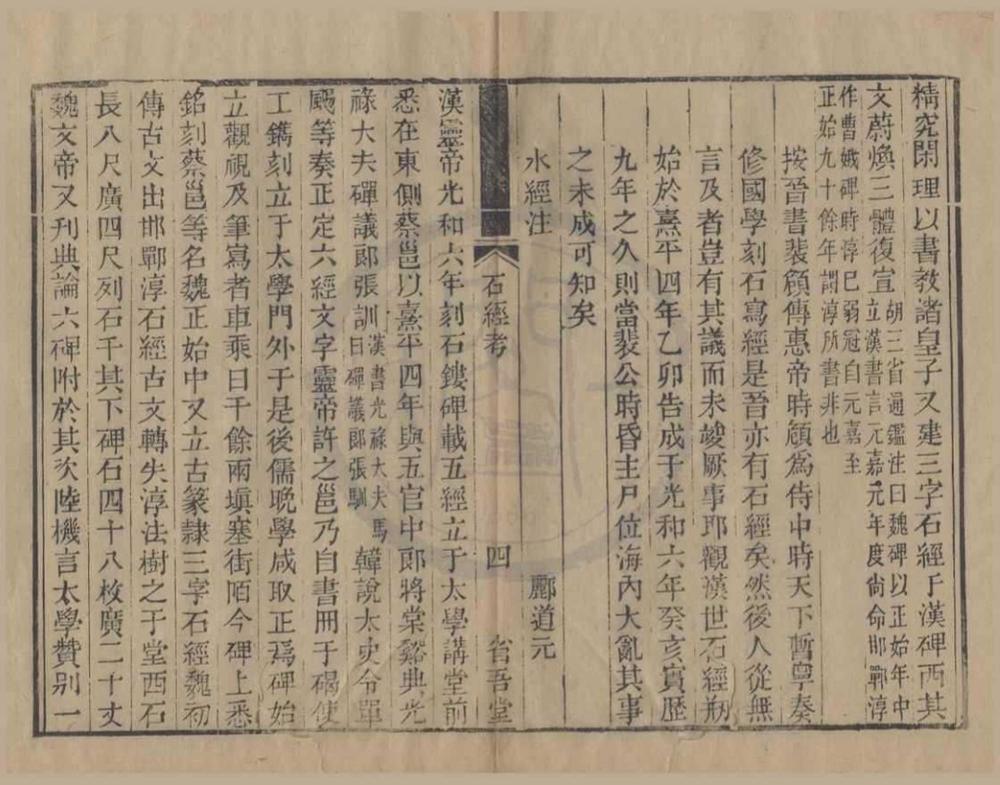 精究閑理以書教諸皇子又建三字石經于漢碑西其
文蔚煥三體復宣胡三省通鑑注曰魏碑以正始年中
立漢書言元嘉元年度尚命邯鄲淳
作曹娥碑時淳已弱冠自元嘉至
正始九十餘年謂淳所書非也
按晉書裴頠傳惠帝時頠爲侍中時天下暫寧奏
修國學刻石寫經是晉亦有石經矣然後人從無
言及者豈有其議而未竣厥事耶觀漢世石經刱
始於熹平四年乙卯告成于光和六年癸亥實歷
九年之久則當裴公時昏主尸位海內大亂其事
之未成可知矣
水經注 酈道元
石經考 四 省吾堂
漢靈帝光和六年刻石鏤碑載五經立于太學講堂前
悉在東側蔡邕以熹平四年與五官中郎將棠谿典光
祿大夫磾議郎張訓漢書光祿大夫馬
日磾議郎張馴韓說太史令單
颺等奏正定六經文字靈帝許之邕乃自書冊于碣使
工鐫刻立于太學門外于是後儒晚學咸取正焉碑始
立觀視及筆寫者車乘日千餘兩塡塞街陌今碑上悉
銘刻蔡邕等名魏正始中又立古篆隸三字石經魏初
傳古文出邯鄲淳石經古文轉失淳法樹之于堂西石
長八尺廣四尺列石于其下碑石四十八枚廣二十丈
魏文帝又刊典論六碑附於其次陸機言太學贊别一